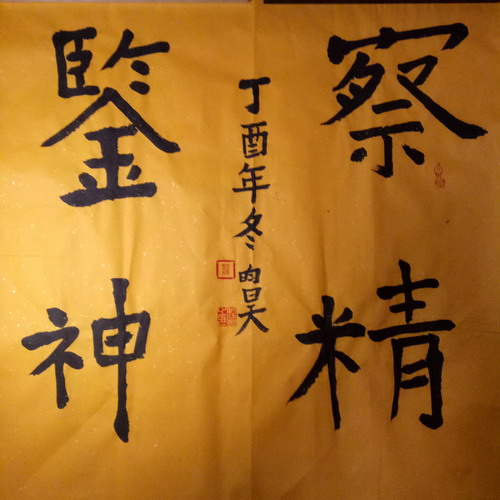 察精
鑒神
丁酉年冬昀昊